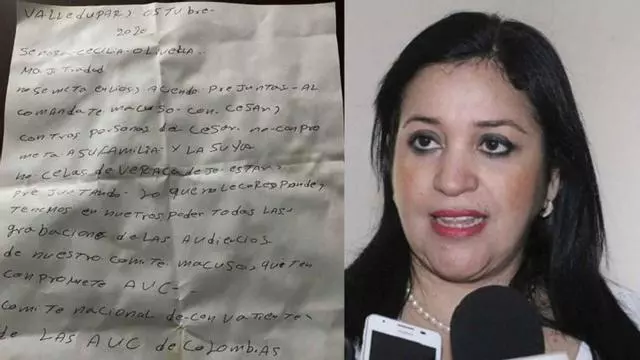 VALLEDUPAR, OSTUbre-
2020
Señora-CECiLiA-OLiVELLA..
MajiTrada
no Se meta en Lios, Aciendo PrejunTas-AL
comandaTe macuso-con-CeSAR,
con Tros personas deL CeSar. no-conpro
meTa A SU fAmiLiA-Y LA SUYA
de-ESTAR,
PrejuTando- Lo que no Le coresponde,
Tenemos en nueTros Poder Todas LAS
grabacione de LAS AUdiencios
de nuestro comiTe macuso, que Te
conPromeTe AUC--
comiTe nacional de-con
de LAS AUC de coLombias